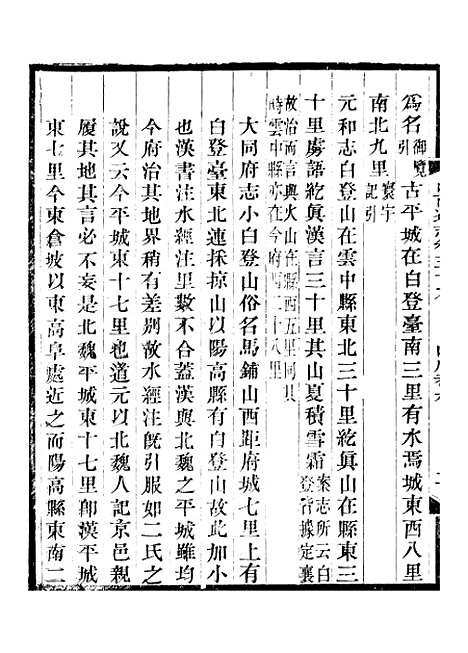 爲名御覽引古平城在白登臺南三里有水焉城東西八里
南北九里寰宇記引
元和志白登山在雲中縣東北三十里紇眞山在縣東三
十里虜語紇眞漢言三十里其山夏積雪霜案志所云白登皆據定襄
故治而言與火山在縣西五里同其時雲中縣亦在今府西二十八里
大同府志小白登山俗名馬鋪山西距府城七里上有
白登臺東北連採掠山以陽高縣有白登山故此加小
也漢書注水經注里數不合蓋漢與北魏之平城雖均
今府治其地界稍有差別故水經注旣引服如二氏之
說又云今平城東十七里也道元以北魏人記京邑親
履其地其言必不妄是北魏平城東十七里卽漢平城
東七里今東倉坡以東高阜處近之而陽高縣東南二